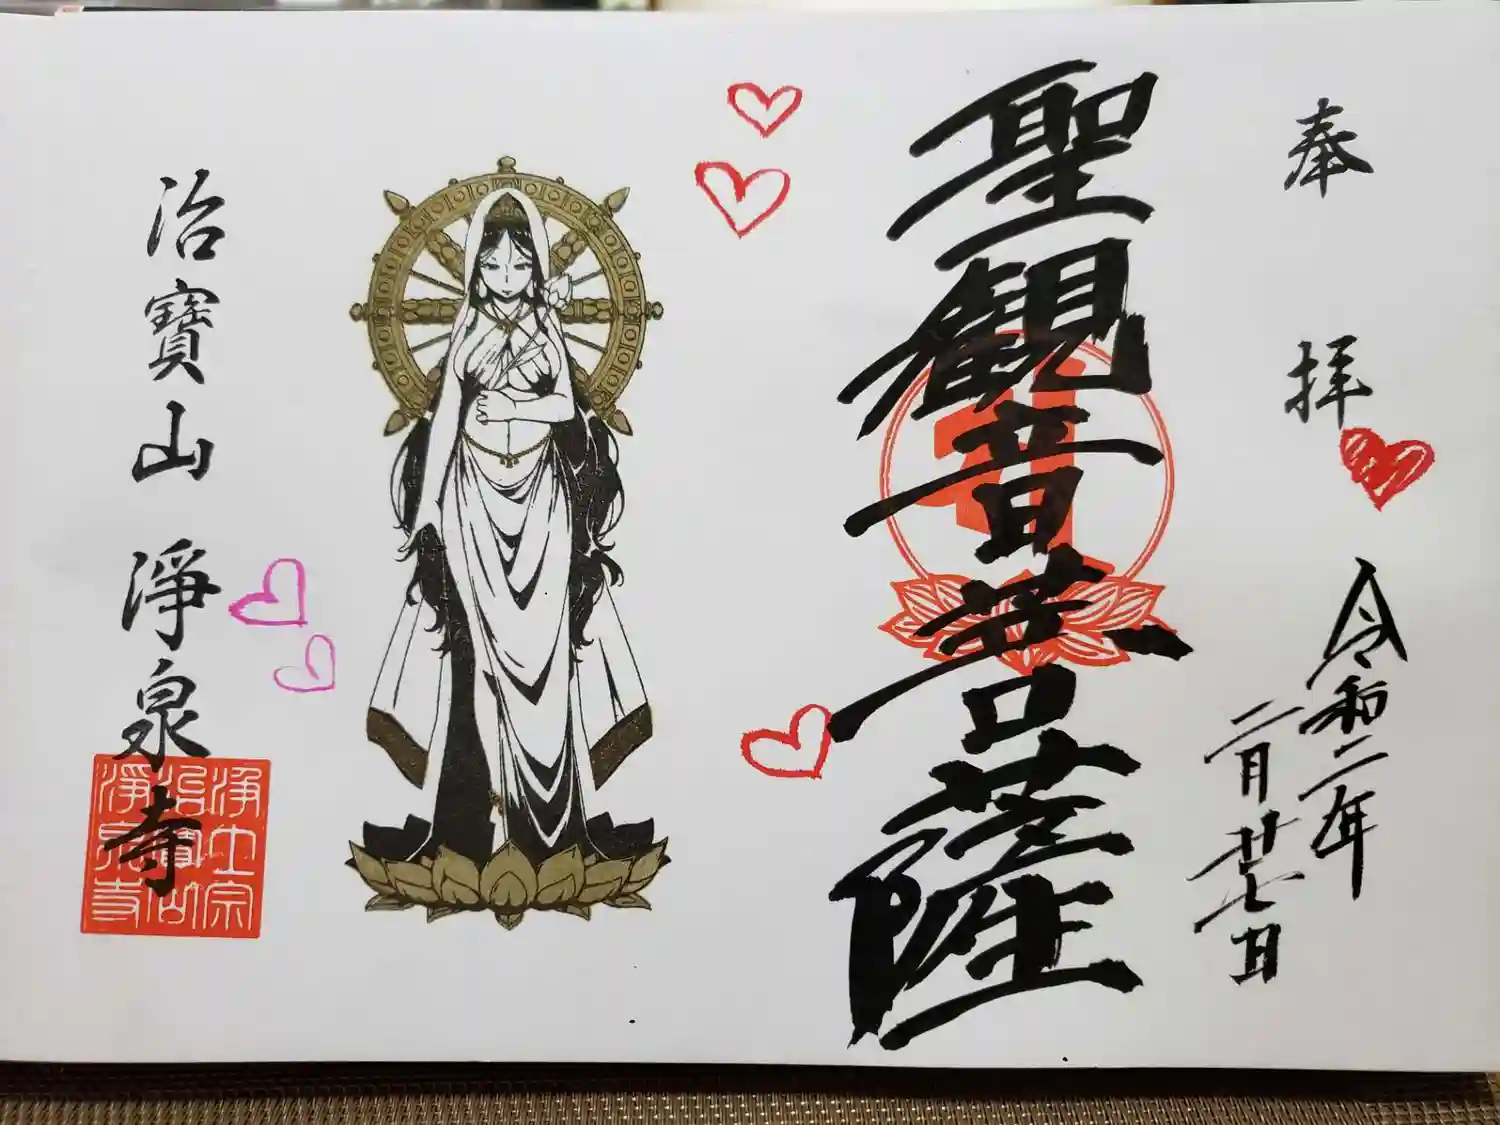 奉拝
令和二年
二月廿七日
聖観音菩薩
治寶山 淨泉寺
浄土宗
治寶山
淨泉寺